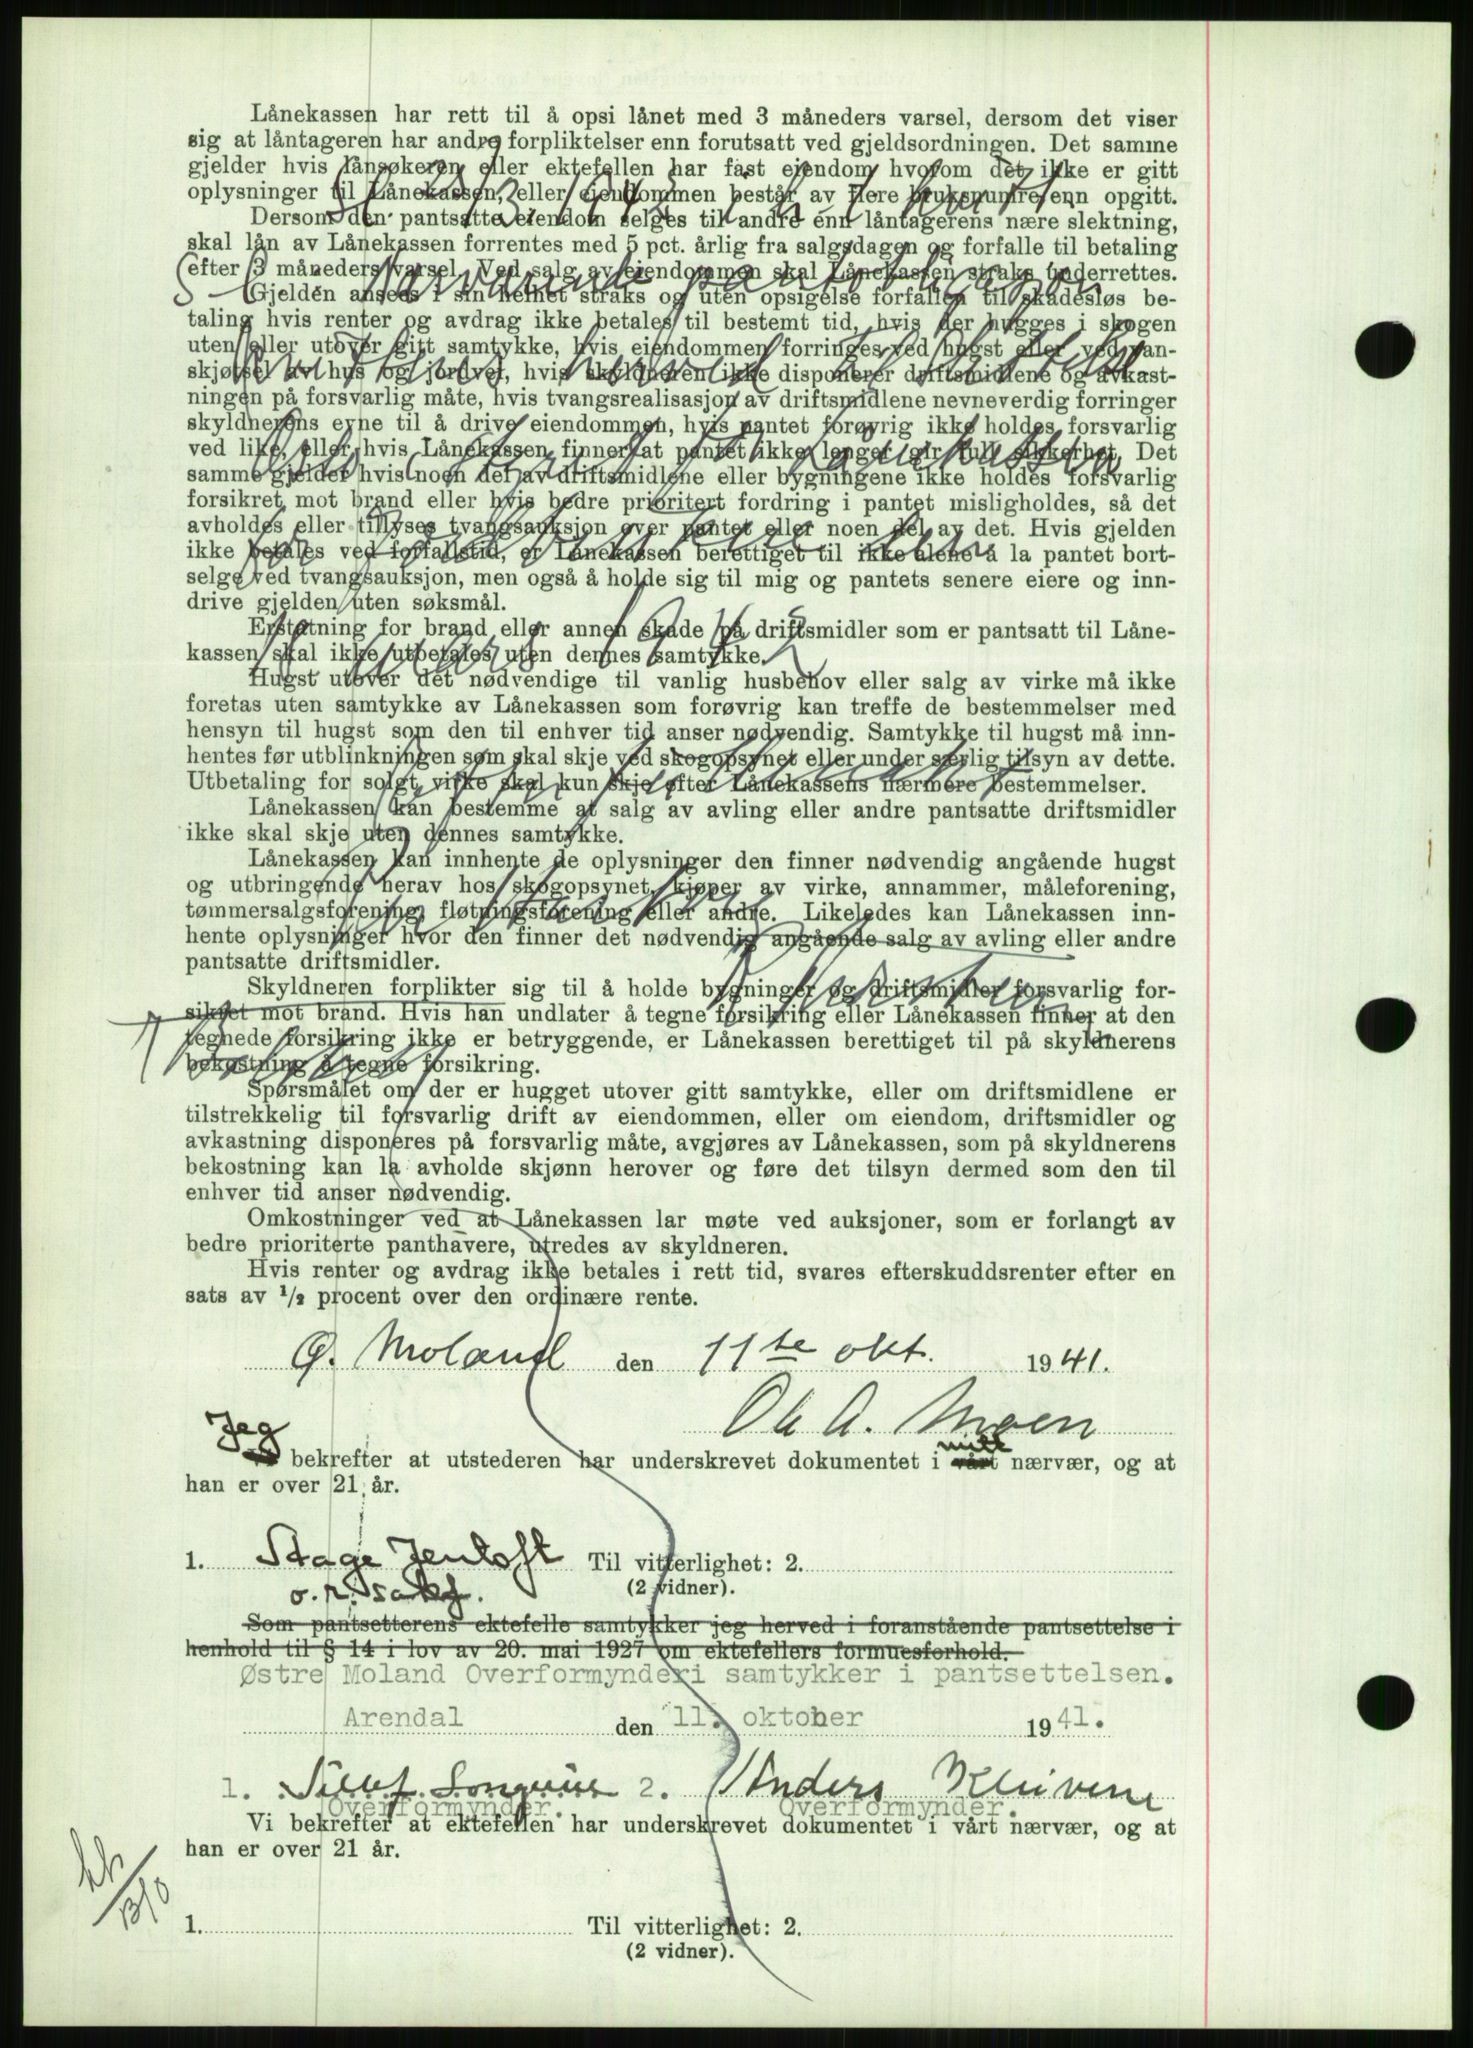 Lånekassen har rett til å opsi lånet med 3 måneders varsel, dersom det viser
sig at låntageren har andre forpliktelser enn forutsatt ved gjeldsordningen. Det samme
gjelder hvis lånsøkeren eller ektefellen har fast eiendom hvorom det ikke er gitt
oplysninger til Lånekassen, eller eiendommen består av flere bruksnumre enn opgitt.
Dersom den pantsatte eiendom selges til andre enn låntagerens nære slektning,
skal lån av Lånekassen forrentes med 5 pct. årlig fra salgsdagen og forfalle til betaling
efter 3 måneders varsel. Ved salg av eiendommen skal Lånekassen straks underrettes.
Gjelden ansees i sin helhet straks og uten opsigelse forfallen til skadesløs be-
taling hvis renter og avdrag ikke betales til bestemt tid, hvis der hugges i skogen
uten eller utover gitt samtykke, hvis eiendommen forringes ved hugst eller ved van-
skjøtsel av hus og jordvei, hvis skyldneren ikke disponerer driftsmidlene og avkast-
ningen på forsvarlig måte, hvis tvangsrealisasjon av driftsmidlene nevneverdig forringer
skyldnerens evne til å drive eiendommen, hvis pantet forøvrig ikke holdes forsvarlig
ved like, eller hvis Lånekassen finner at pantet ikke lenger gir full sikkerhet. Det
samme gjelder hvis noen del av driftsmidlene eller bygningene ikke holdes forsvarlig
forsikret mot brand eller hvis bedre prioritert fordring i pantet misligholdes, så det
avholdes eller tillyses tvangsauksjon over pantet eller noen del av det. Hvis gjelden
ikke betales ved forfallstid, er Lånekassen berettiget til ikke alene å la pantet bort-
selge ved tvangsauksjon, men også å holde sig til mig og pantets senere eiere og inn-
drive gjelden uten søksmål.
11 mars 1942
Erstatning for brand eller annen skade på driftsmidler som er pantsatt til Låne-
kassen skal ikke utbetales uten dennes samtykke.
Hugst utover det nødvendige til vanlig husbehov eller salg av virke må ikke
foretas uten samtykke av Lånekassen som forøvrig kan treffe de bestemmelser med
hensyn til hugst som den til enhver tid anser nødvendig. Samtykke til hugst må inn-
hentes før utblinkningen som skal skje ved skogopsynet eller under særlig tilsyn av dette.
Utbetaling for solgt virke skal kun skje efter Lånekassens nærmere bestemmelser.
Lånekassen kan bestemme at salg av avling eller andre pantsatte driftsmidler
ikke skal skje uten dennes samtykke.
Lånekassen kan innhente de oplysninger den finner nødvendig angående hugst
og utbringende herav hos skogopsynet, kjøper av virke, annammer, måleforening,
tømmersalgsforening, fløtningsforening eller andre. Likeledes kan Lånekassen inn-
hente oplysninger hvor den finner det nødvendig angående salg av avling eller andre
pantsatte driftsmidler.
Skyldneren forplikter sig til å holde bygninger og driftsmidler forsvarlig for-
sikret mot brand. Hvis han undlater å tegne forsikring eller Lånekassen finner at den
tegnede forsikring ikke er betryggende, er Lånekassen berettiget til på skyldnerens
bekostning å tegne forsikring.
Spørsmålet om der er hugget utover gitt samtykke, eller om driftsmidlene er
tilstrekkelig til forsvarlig drift av eiendommen, eller om eiendom, driftsmidler og
avkastning disponeres på forsvarlig måte, avgjøres av Lånekassen, som på skyldnerens
bekostning kan la avholde skjønn herover og føre det tilsyn dermed som den til
enhver tid anser nødvendig.
Omkostninger ved at Lånekassen lar møte ved auksjoner, som er forlangt av
bedre prioriterte panthavere, utredes av skyldneren.
Hvis renter og avdrag ikke betales i rett tid, svares efterskuddsrenter efter en
sats av 1/2 procent over den ordinære rente.
Ø. Moland den 11te okt. 1941.
Ole A. Moen
Jeg mitt
Vi bekrefter at utstederen har underskrevet dokumentet i vårt nærvær, og at
han er over 21 år.
1. Stage Jentoft Til vitterlighet: 2.
o.r. sakf. (2 vidner).
Som pantsetterens ektefelle samtykker jeg herved i foranstående pantsettelse i
henhold til § 14 i lov av 20. mai 1927 om ektefellers formuesforhold.
Østre Moland Overformynderi samtykker i pantsettelsen.
Arendal den 11. oktober 1941.
1. 2. Anders Kleivene
Overformynder. Overformynder.
Vi bekrefter at ektefellen har underskrevet dokumentet i vårt nærvær, og at
han er over 21 år.
13/0
1. Til vitterlighet: 2.
(2 vidner).